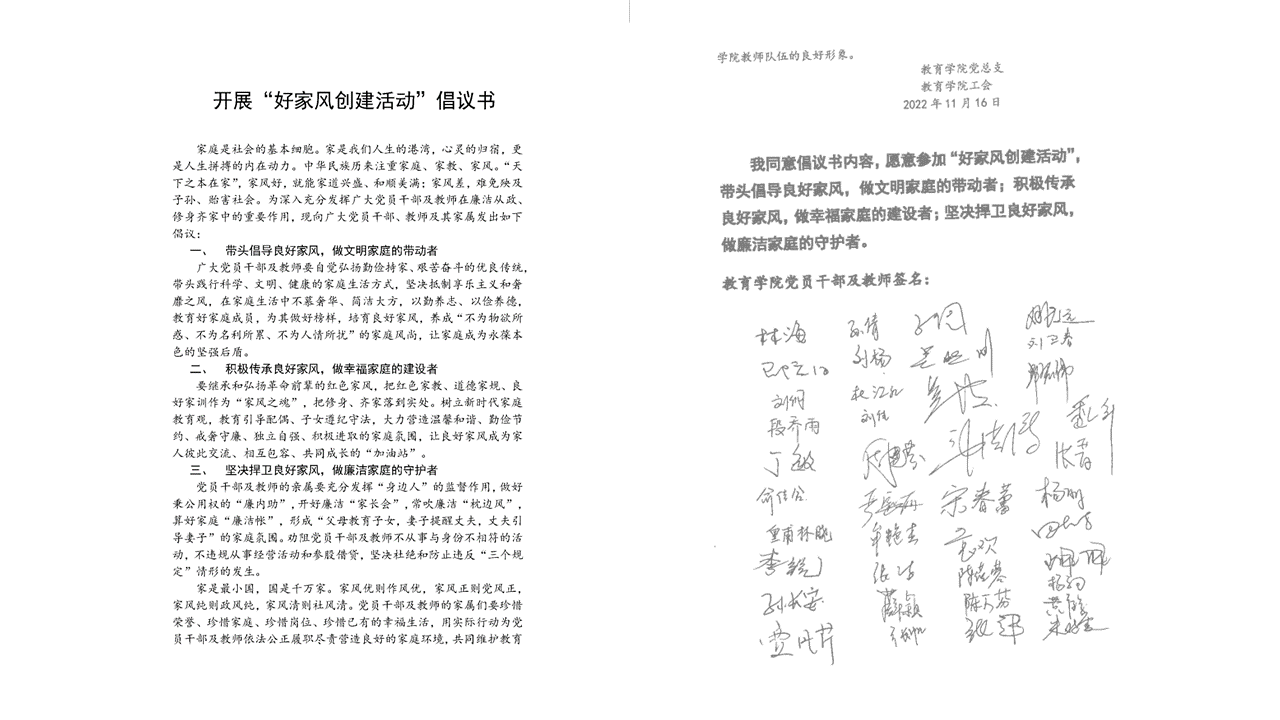 开展“好家风创建活动”倡议书
家庭是社会的基本细胞。家是我们人生的港湾，心灵的归宿，更
是人生拼搏的内在动力。中华民族历来注重家庭、家教、家风。“天
下之本在家”，家风好，就能家道兴盛、和顺美满；家风差，难免殃及
子孙、贻害社会。为深入充分发挥广大党员干部及教师在廉洁从政、
修身齐家中的重要作用，现向广大党员干部、教师及其家属发出如下
倡议：
一、 带头倡导良好家风，做文明家庭的带动者
广大党员干部及教师要自觉弘扬勤俭持家、艰苦奋斗的优良传统，
带头践行科学、文明、健康的家庭生活方式，坚决抵制享乐主义和奢
靡之风，在家庭生活中不慕奢华、简洁大方，以勤养志、以俭养德，
教育好家庭成员，为其做好榜样，培育良好家风，养成“不为物欲所
惑、不为名利所累、不为人情所扰”的家庭风尚，让家庭成为永葆本
色的坚强后盾。
二、 积极传承良好家风，做幸福家庭的建设者
要继承和弘扬革命前辈的红色家风，把红色家教、道德家规、良
好家训作为“家风之魂”，把修身、齐家落到实处。树立新时代家庭
教育观，教育引导配偶、子女遵纪守法，大力营造温馨和谐、勤俭节
约、戒奢守廉、独立自强、积极进取的家庭氛围，让良好家风成为家
人彼此交流、相互包容、共同成长的“加油站”。
三、 坚决捍卫良好家风，做廉洁家庭的守护者
党员干部及教师的亲属要充分发挥“身边人”的监督作用，做好
秉公用权的“廉内助”，开好廉洁“家长会”，常吹廉洁“枕边风”，
算好家庭“廉洁帐”，形成“父母教育子女，妻子提醒丈夫，丈夫引
导妻子”的家庭氛围。劝阻党员干部及教师不从事与身份不相符的活
动，不违规从事经营活动和参股借贷，坚决杜绝和防止违反“三个规
定”情形的发生。
家是最小国，国是千万家。家风优则作风优，家风正则党风正，
家风纯则政风纯，家风清则社风清。党员干部及教师的家属们要珍惜
荣誉、珍惜家庭、珍惜岗位、珍惜已有的幸福生活，用实际行动为党
员干部及教师依法公正履职尽责营造良好的家庭环境，共同维护教育
学院教师队伍的良好形象。
教育学院党总支
教育学院工会
2022 年 11 月 16 日
我同意倡议书内容，愿意参加“好家风创建活动”，
带头倡导良好家风，做文明家庭的带动者；积极传承
良好家风，做幸福家庭的建设者；坚决捍卫良好家风，
做廉洁家庭的守护者。
教育学院党员干部及教师签名：
林海 孙倩
刘卫春
刘杨
刘钢
段乔雨 刘佳
丁敏
俞佳公
宋春蕾 杨明
皇甫林晓
李锐
张洁
孙长安 薛颖 陈万芬
贾凤芹 张辉